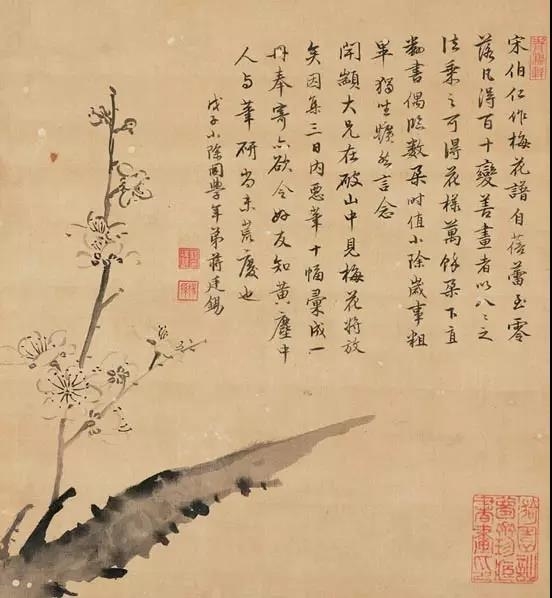 宋伯仁作梅花譜自蓓蕾至零
落凡得百十變善畫者以八八之
法乘之可得花樣萬餘朵下直
書偶臨數朵時值小除歲事粗
畢獨坐然言念
開大兄在破山中見梅花將放
矣因集三日內惡筆十幅彙成一
冊奉寄亦欲令好友知黃塵中
人与筆研尚未荒廢也
戊子小除同學年弟蔣廷錫